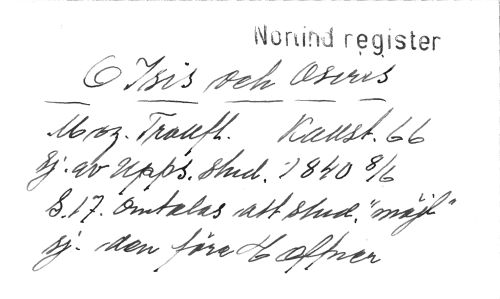 Norlind register
O Isis och Osiris
Moz. Trollfl. Kallst. 66
Sj. av Upps. stud. 1840 8/6
S.17. Omtalas att stud. "möjl"
sj. den före